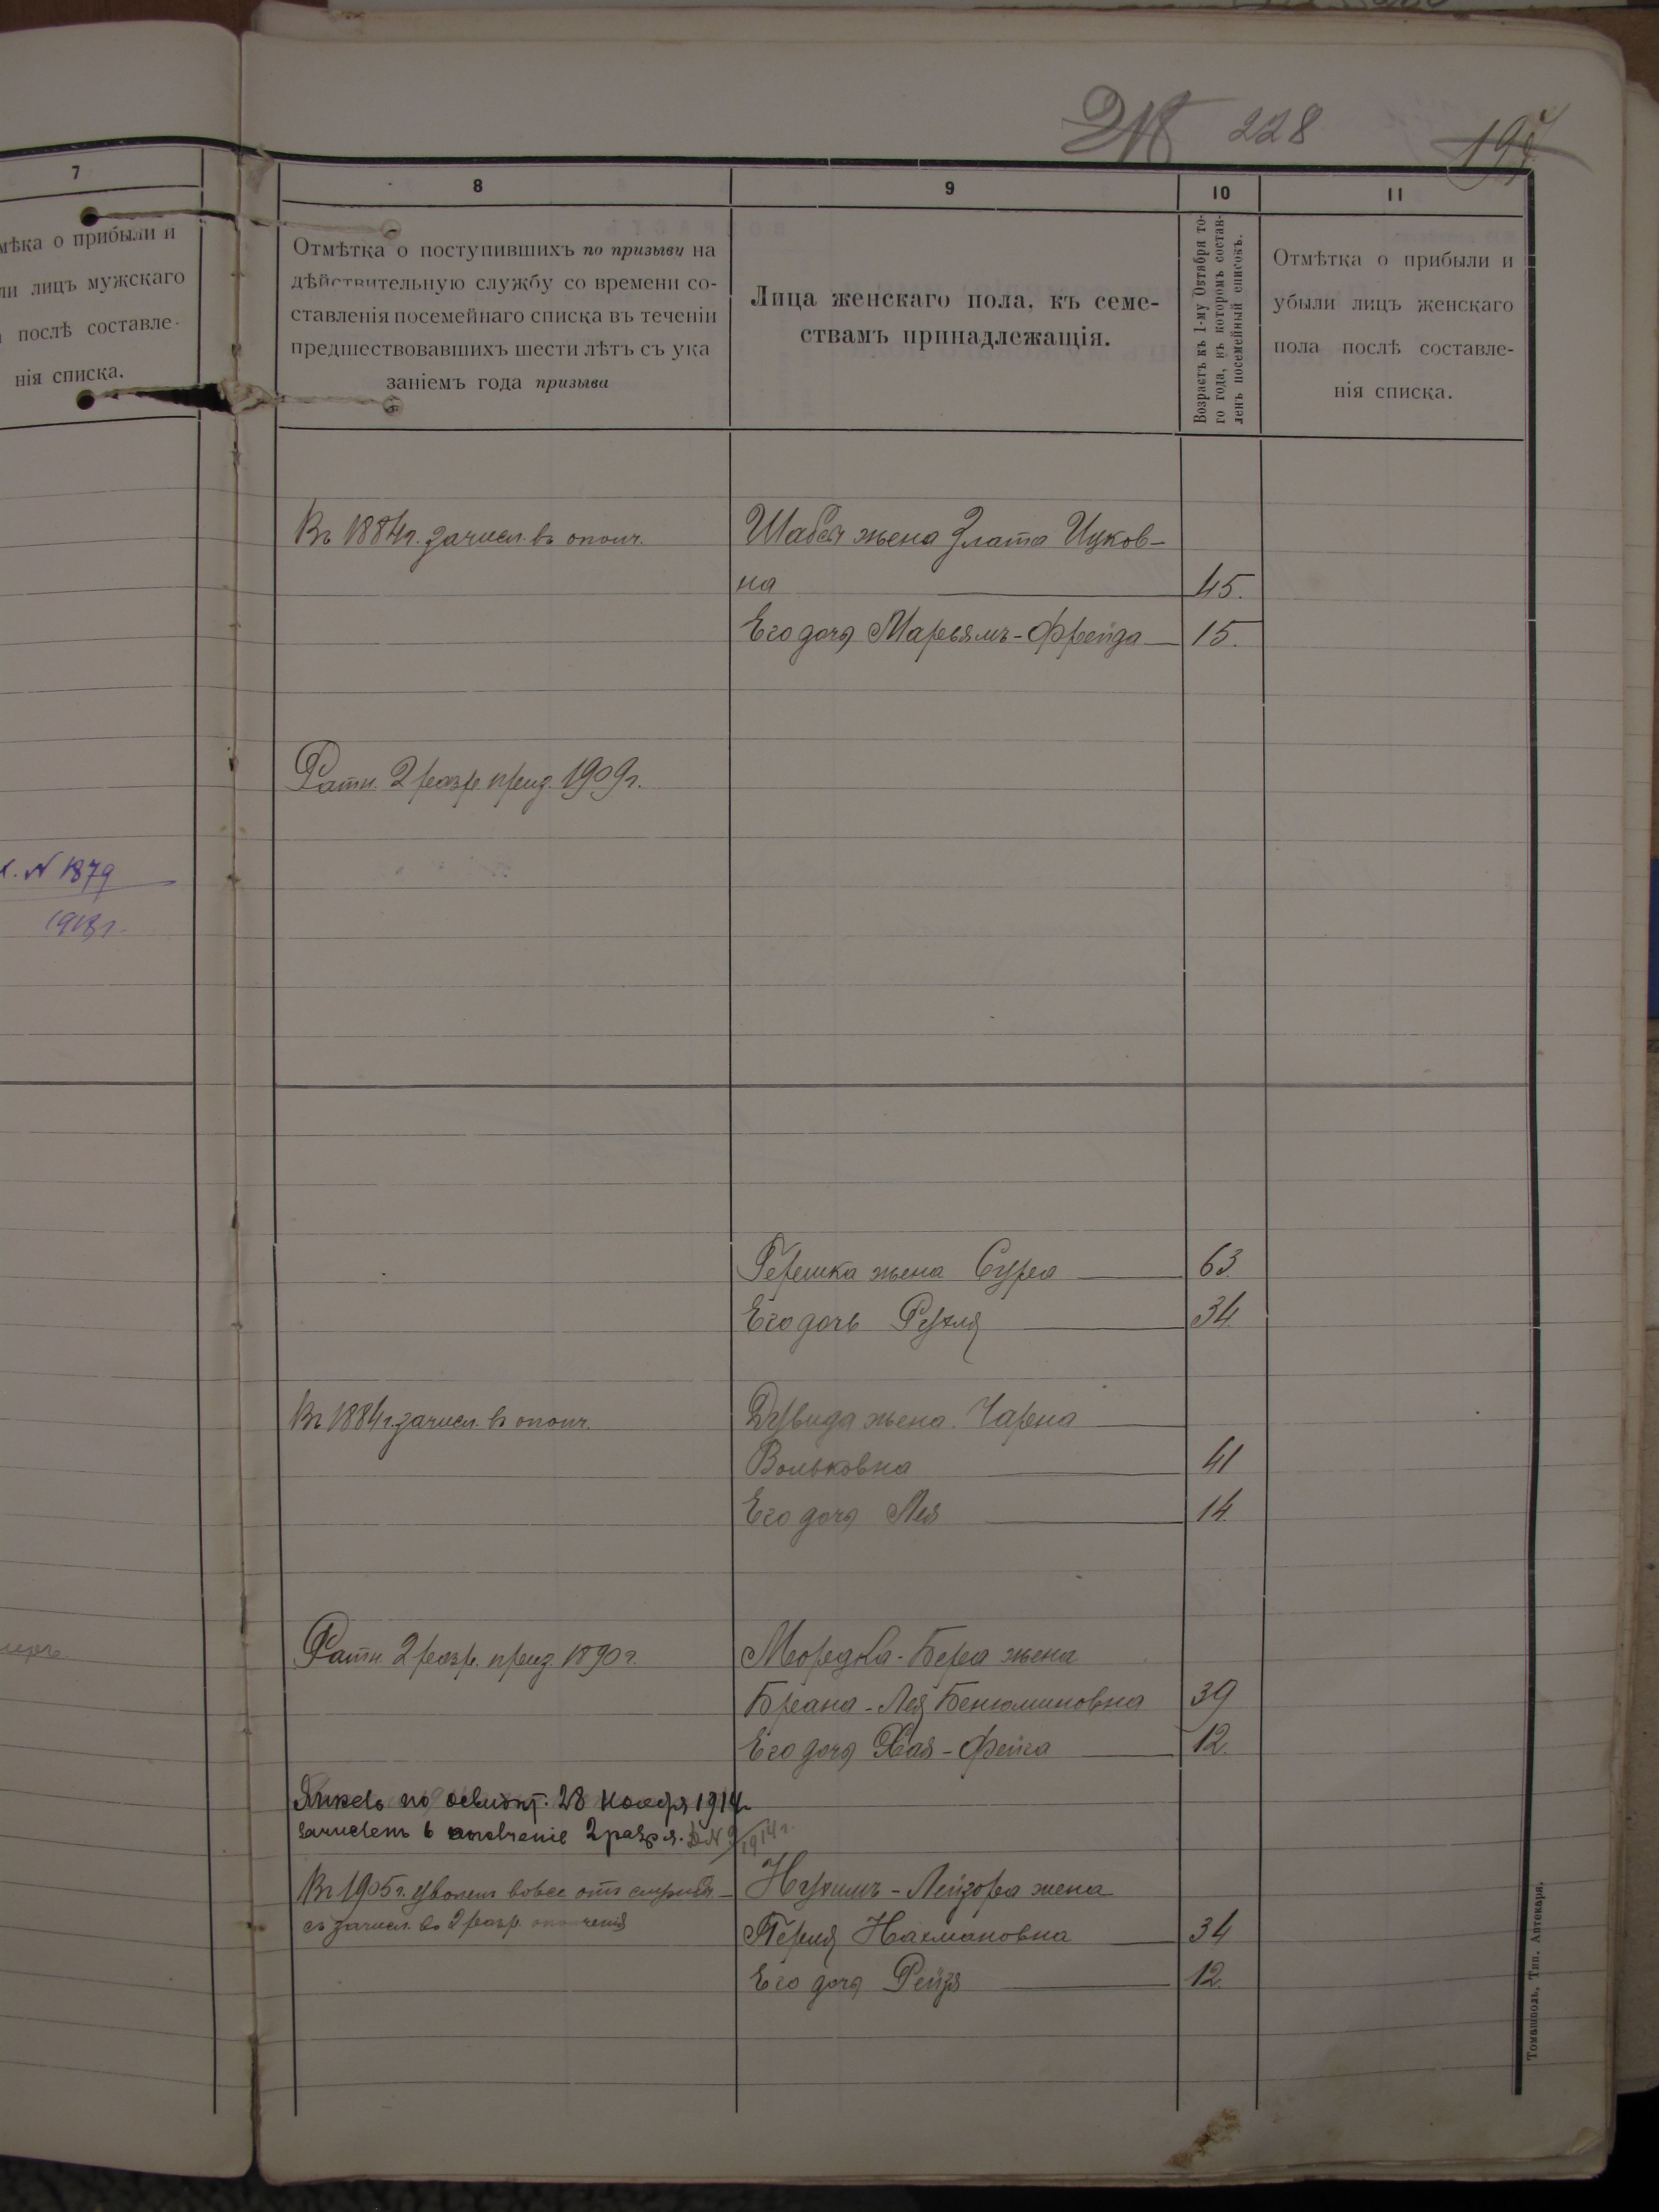 228
7
мѣка о прибыли и
ли лицъ мужскаго
послѣ составле-
нія списка.
N 1879
8
Отмѣтка о поступившихъ по призыву на
дѣйствительную службу со времени со-
ставленія посемейнаго списка въ теченіи
предшествовавшихъ шести лѣтъ съ ука
заніемъ года призыва
9
Лица женскаго пола, къ семе-
ствамъ принадлежащія.
10
Возрастъ къ 1-му Октября то-
го года, въ которомъ состав-
ленъ посемейный списокъ.
11
Отмѣтка о прибыли и
убыли лицъ женскаго
пола послѣ составле-
нія списка.
Въ 1884 г. зачисл. въ ополч. Шабся жена Злата Ицков-
на 45.
Его дочь Марьямъ-Фрейда 15.
Ратн. 2 разр. приз. 1909 г.
Гершка жена Сура 63.
Его дочь Рухля 34.
Въ 1884 г. зачисл. въ ополч. Дувида жена Чарна
Вольковна 41
Его дочь Лея 14.
Ратн. 2 разр. приз. 1890 г. Мордка-Бера жена
Бреана-Лея Бенюминовна 39
Его дочь Хая-Фейга 12.
Янкель по 28 Ноября 1914 г.
зачислен в ополчение 2 разря. N 9/1914 г.
Въ 1905 г. уволен вовсе отъ службы Нухимъ-Лейзора жена
съ зачисл. во 2 разр. ополченія Перля Нахмановна 34
Его дочь Рейзя 12.
Томашполь, Тип. Аптекаря.